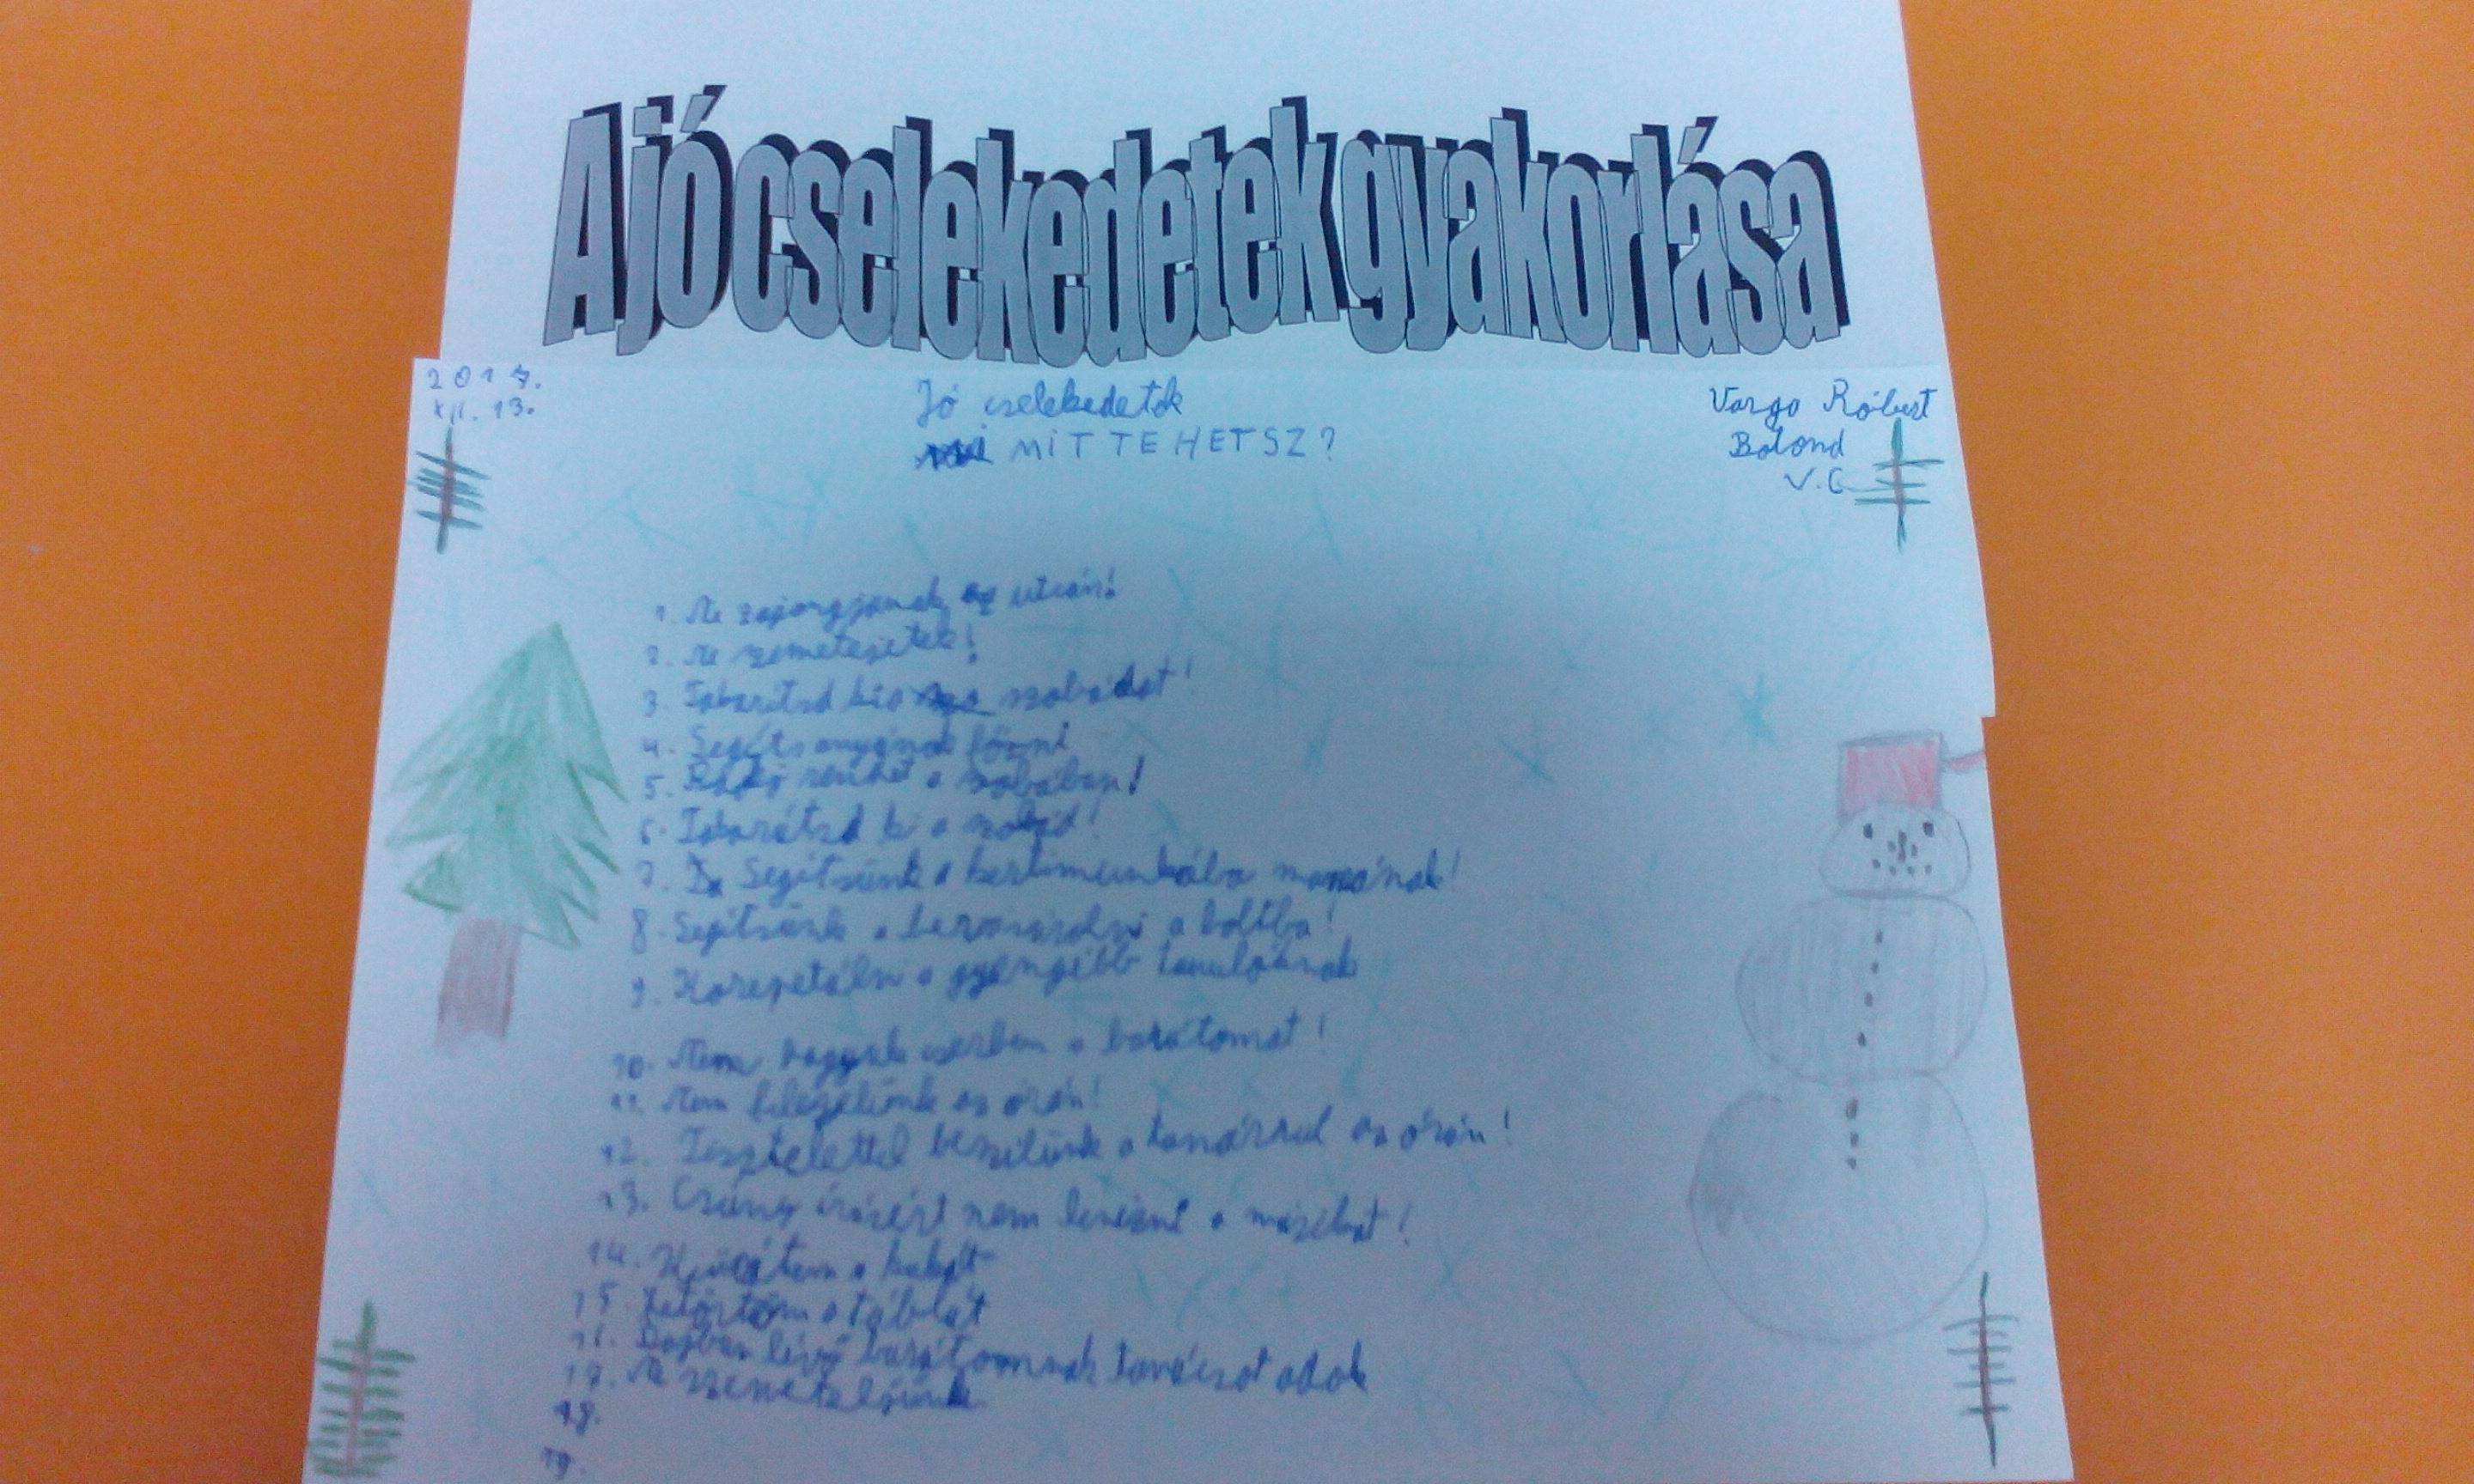 A jó cselekedetek gyakorlása
2017.
XII. 13.
Jó cselekedetek
MIT TEHETSZ?
Varga Róbert
Botond
V. C
1. Ne zajongjanak az utcán!
2. Ne szemeteljetek!
3. Takarítsd ki a szobádat!
4. Segíts anyának főzni
5. Rakj rendet a szobában!
6. Takarítsd ki a szobád!
7. Segítsünk a kertimunkába mamának!
8. Segítsünk a bevásárolni a boltba!
9. Korepetálni a gyengébb tanulóknak
10. Nem hagyok cserben a barátomat!
11. Nem beszélünk az órán!
12. Tisztelettel beszélünk a tanárral az órán!
13. Csúny írásért nem lenézni a másikat!
14. Kiürítem a kukát
15. Letörlöm a táblát
16. Bajban lévő barátomnak tanácsot adok
17. Ne szemeteljünk
18.
19.